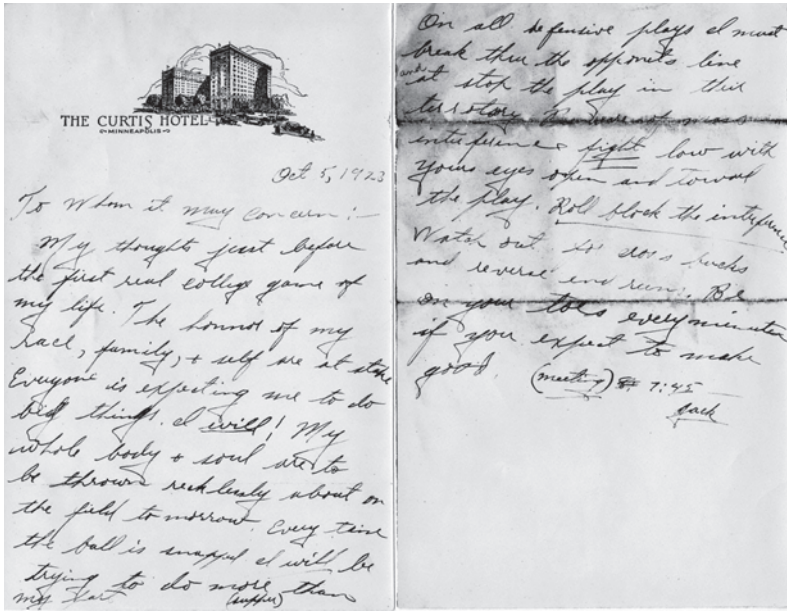 THE CURTIS HOTEL
MINNEAPOLIS
Oct 5, 1923
To Whom it may concern :-
My thoughts just before
the first real college game of
my life. The honor of my
race, family, & self are at stake
Everyone is expecting me to do
big things. I will! My
whole body & soul are to
be thrown recklessly about on
the field tomorrow. Every time
the ball is snapped I will be
trying to do more than
my part. (supper)
On all defensive plays I must
break thru the opponets line
and stop the play in their
territory. Beware of mass
interference fight low with
yours eyes open and toward
the play. Roll block the interference
Watch out for cross bucks
and reverse end runs. Be
on your toes every minute
if you expect to make
good. (meeting) 7:45
Jack